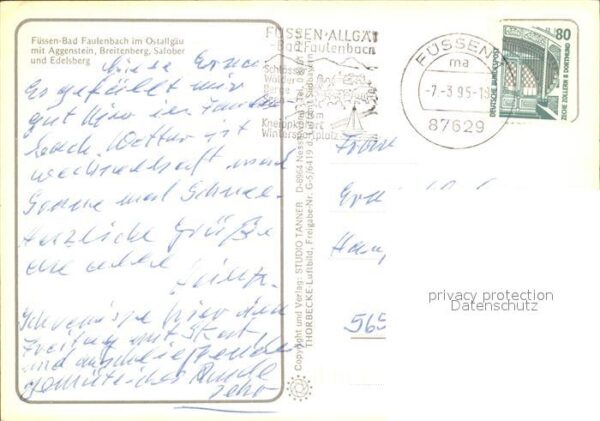 Füssen-Bad Faulenbach im Ostallgäu
mit Aggenstein, Breitenberg, Salober
und Edelsberg
Liebe Erna
Es gefällt mir
gut hier in Faulen-
bach. Wetter ist
wechselhaft mal
Sonne mal Schnee
Herzliche Grüße
an alle
Ich vermisse hier den
Freitag mit Skat
und anschließende
gemütliche Runde
FÜSSEN · ALLGÄU
-Bad Faulenbach
Schlösser
Wandern
Berge
Kneippkurort
Wintersportplatz
FÜSSEN 1
ma
-7.-3.95-18
87629
80
DEUTSCHE BUNDESPOST
ZECHE ZOLLERN II DORTMUND
Copyright und Verlag: STUDIO TANNER D-8964 Nesselwang
THORBECKE-Luftbild, Freigabe-Nr. G-5/6419
Frau
565
privacy protection
Datenschutz